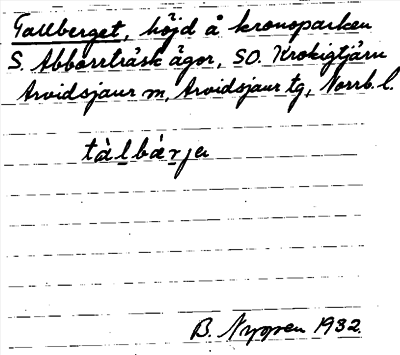 Tallberget, höjd å kronoparken
S. Abborrträsk ägor, SO. Krokigtjärn
Arvidsjaur sn, Arvidsjaur tg, Norrb. l.
tàlbàrjə
B. Nygren 1932.